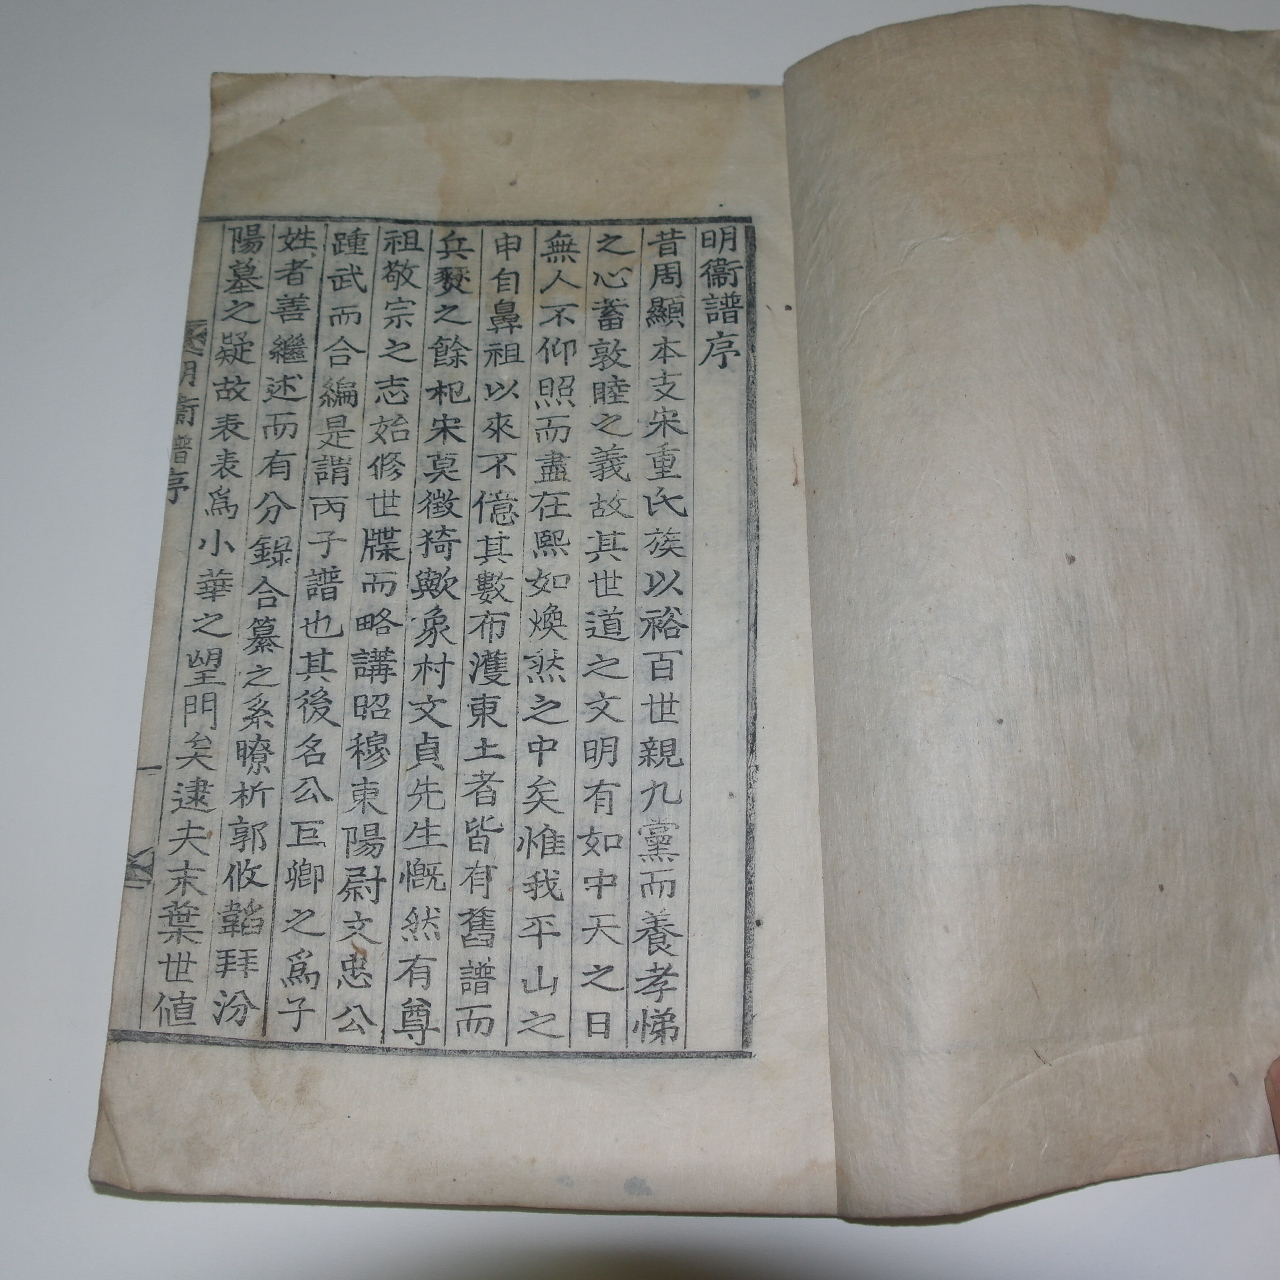 明衞譜序
昔周顯本支宋重氏族以裕百世親九黨而養孝悌
之心蓄敦睦之義故其世道之文明有如中天之日
無人不仰照而盡在熙如煥然之中矣惟我平山之
申自鼻祖以來不億其數布濩東土者皆有舊譜而
兵燹之餘杞宋莫徵猗歟象村文貞先生慨然有尊
祖敬宗之志始修世牒而略講昭穆東陽尉文忠公
踵武而合編是謂丙子譜也其後名公巨卿之爲子
姓者善繼述而有分錄合纂之系瞭析郭攸韜拜汾
陽墓之疑故表表爲小華之望門矣逮夫末葉世値
明衞譜序
一